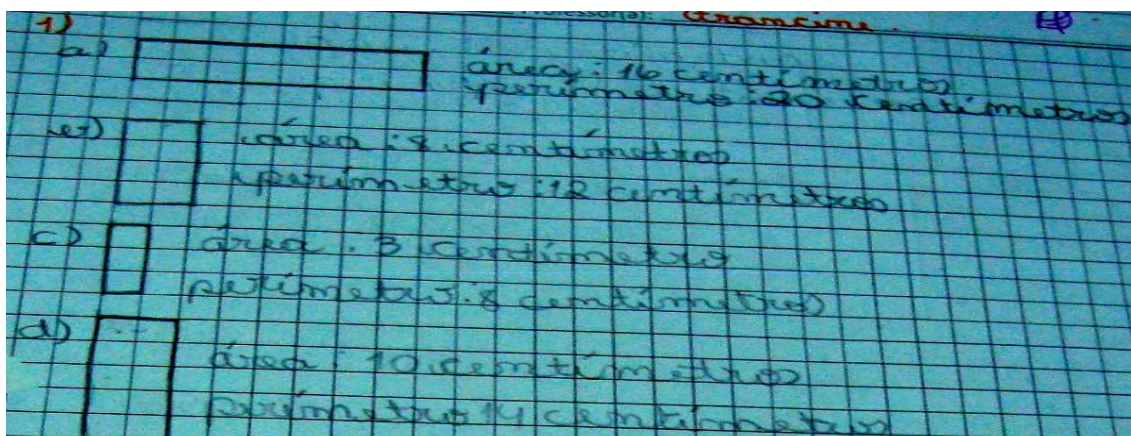 Professor(a): Francine.
1)
a)
área: 16 centímetros
perímetro: 20 centímetros
b)
área: 8 centímetros
perímetro: 12 centímetros
c)
área. 3 centímetro
perímetro: 8 centímetros
d)
área: 10 centímetros
perímetro 14 centímetro